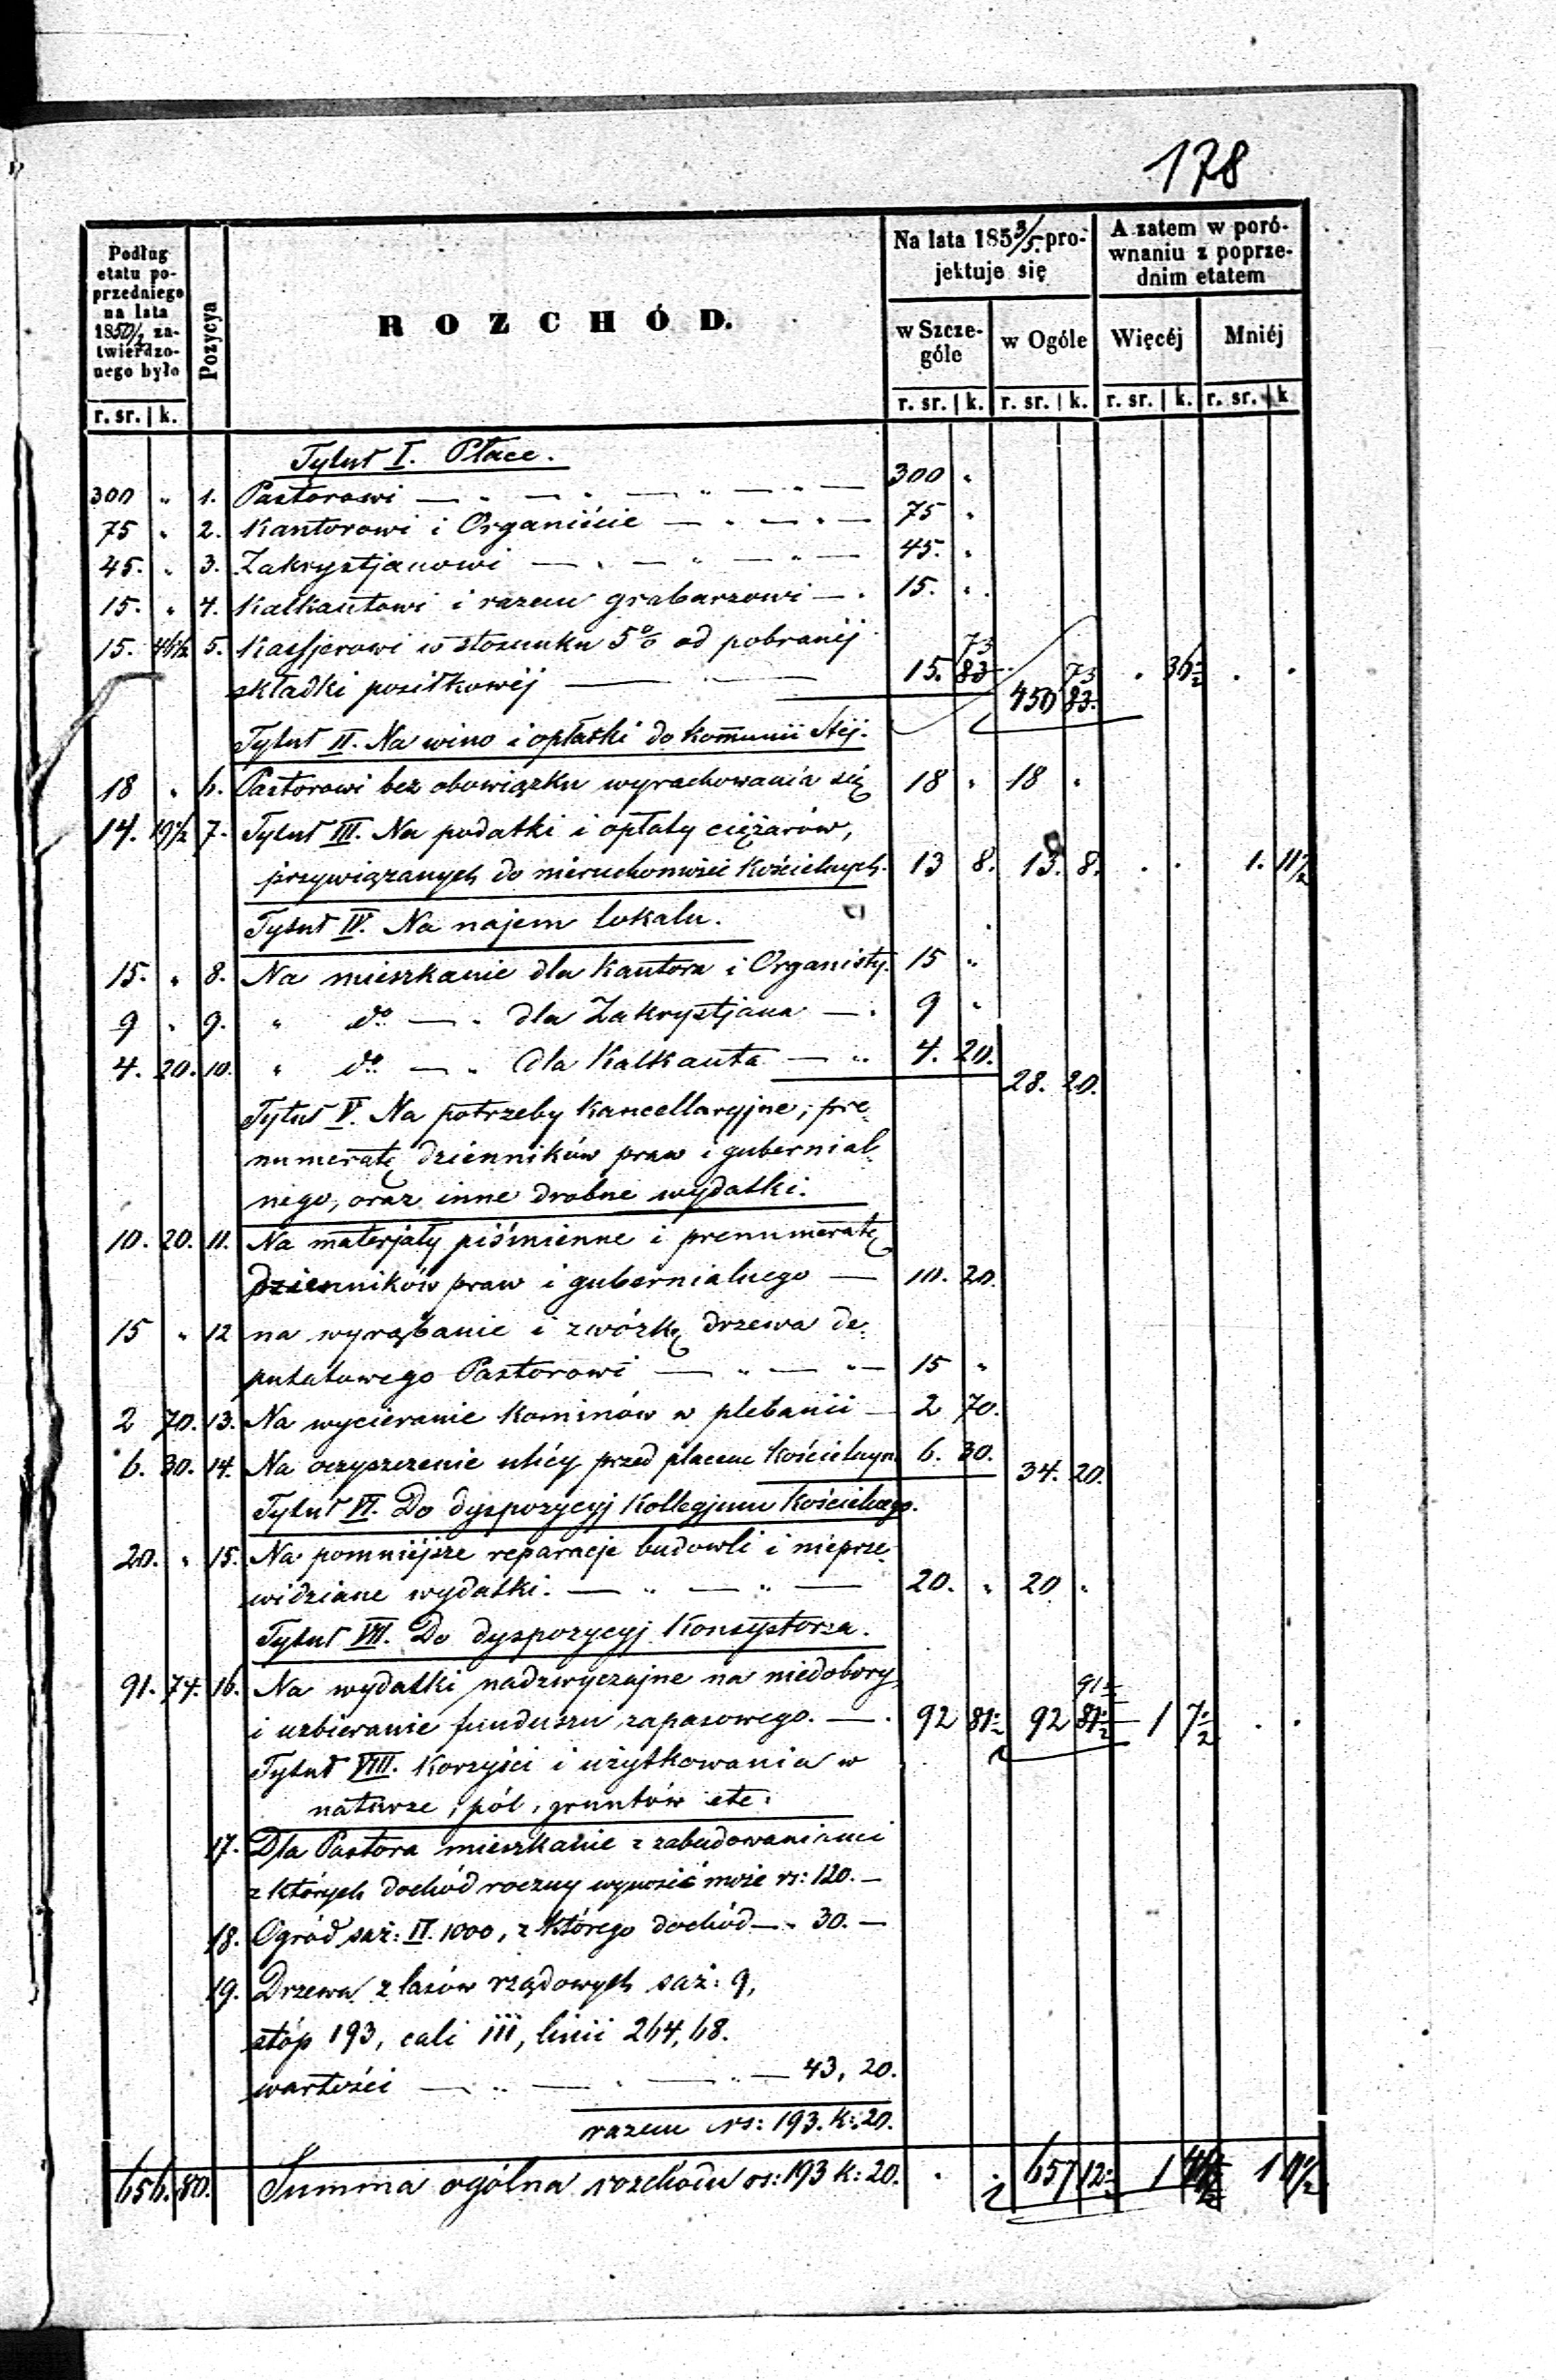 178
Podług etatu poprzedniego na lata 1850/2 zatwierdzonego było
Pozycya
ROZCHÓD.
Na lata 1853/5 projektuje się
A zatem w porównaniu z poprzednim etatem
w Szczególe
w Ogóle
Więcéj
Mniéj
r. sr. | k.
r. sr. | k. r. sr. | k. r. sr. | k. r. sr. | k
Tytuł I. Płace.
300 " 1. Pastorowi — " — " — " — " — 300 "
75 " 2. Kantorowi i Organiście — " — " — 75 "
45. " 3. Zakrystjanowi — " — " — " — 45. "
15. " 4. Kalkantowi i razem grabarzowi — . 15. "
15. 46½ 5. Kassjerowi w stosunku 5% od pobranéj 73
składki posiłkowéj — — 15. 83 450 73 83. . 36½ . .
Tytuł II. Na wino i opłatki do Kommunii Stéj.
18 " 6. Pastorowi bez obowiązku wyrachowania się 18 " 18 "
14. 19½ 7. Tytuł III. Na podatki i opłaty ciężarów,
przywiązanych do nieruchomości Kościelnych. 13 8. 13. 8. . . 1. 11½
Tytuł IV. Na najem lokalu.
15. " 8. Na mieszkanie dla Kantora i Organisty. 15 "
9 " 9. " do — " dla Zakrystjana — . 9 "
4. 20. 10. " do — " dla Kalkanta — " 4. 20.
28. 20.
Tytuł V. Na potrzeby Kancellaryjne, pre-
numeratę dzienników praw i gubernial-
nego, oraz inne drobne wydatki.
10. 20. 11. Na materjały piśmienne i prenumeratę
dzienników praw i gubernialnego — 10. 20.
15 " 12 na wyrąbanie i zwózkę drzewa de-
putatowego Pastorowi — " — " — 15 "
2 70. 13. Na wycieranie kominów w plebanii — 2 70.
6. 30. 14. Na oczyszczenie ulicy przed placem Kościelnym 6. 30.
34. 20.
Tytuł VI. Do dyspozycyj Kollegjum Kościelnego.
20. " 15. Na pomniéjsze reparacje budowli i nieprze-
widziane wydatki. — " — " — 20. " 20 "
Tytuł VII. Do dyspozycyj Konsystorza.
91. 74. 16. Na wydatki nadzwyczajne na niedobory
i uzbieranie funduszu zapasowego. — . 92 81½ 92 91½ 81½ 1 7½ . .
Tytuł VIII. Korzyści i użytkowania w
naturze, pól, gruntów etc:
17. Dla Pastora mieszkanie z zabudowaniami
z których dochód roczny wynosić może rs: 120. —
18. Ogród saż: II. 1000, z którego dochód — " 30. —
19. Drzewa z lasów rządowych saż: 9,
stóp 193, cali III, linii 264,68.
wartości — " — " — " — 43, 20.
razem rs: 193. k: 20.
656. 80. Summa ogólna rozchodu rs: 193 k: 20. . . 657 12½ 1 1 11½